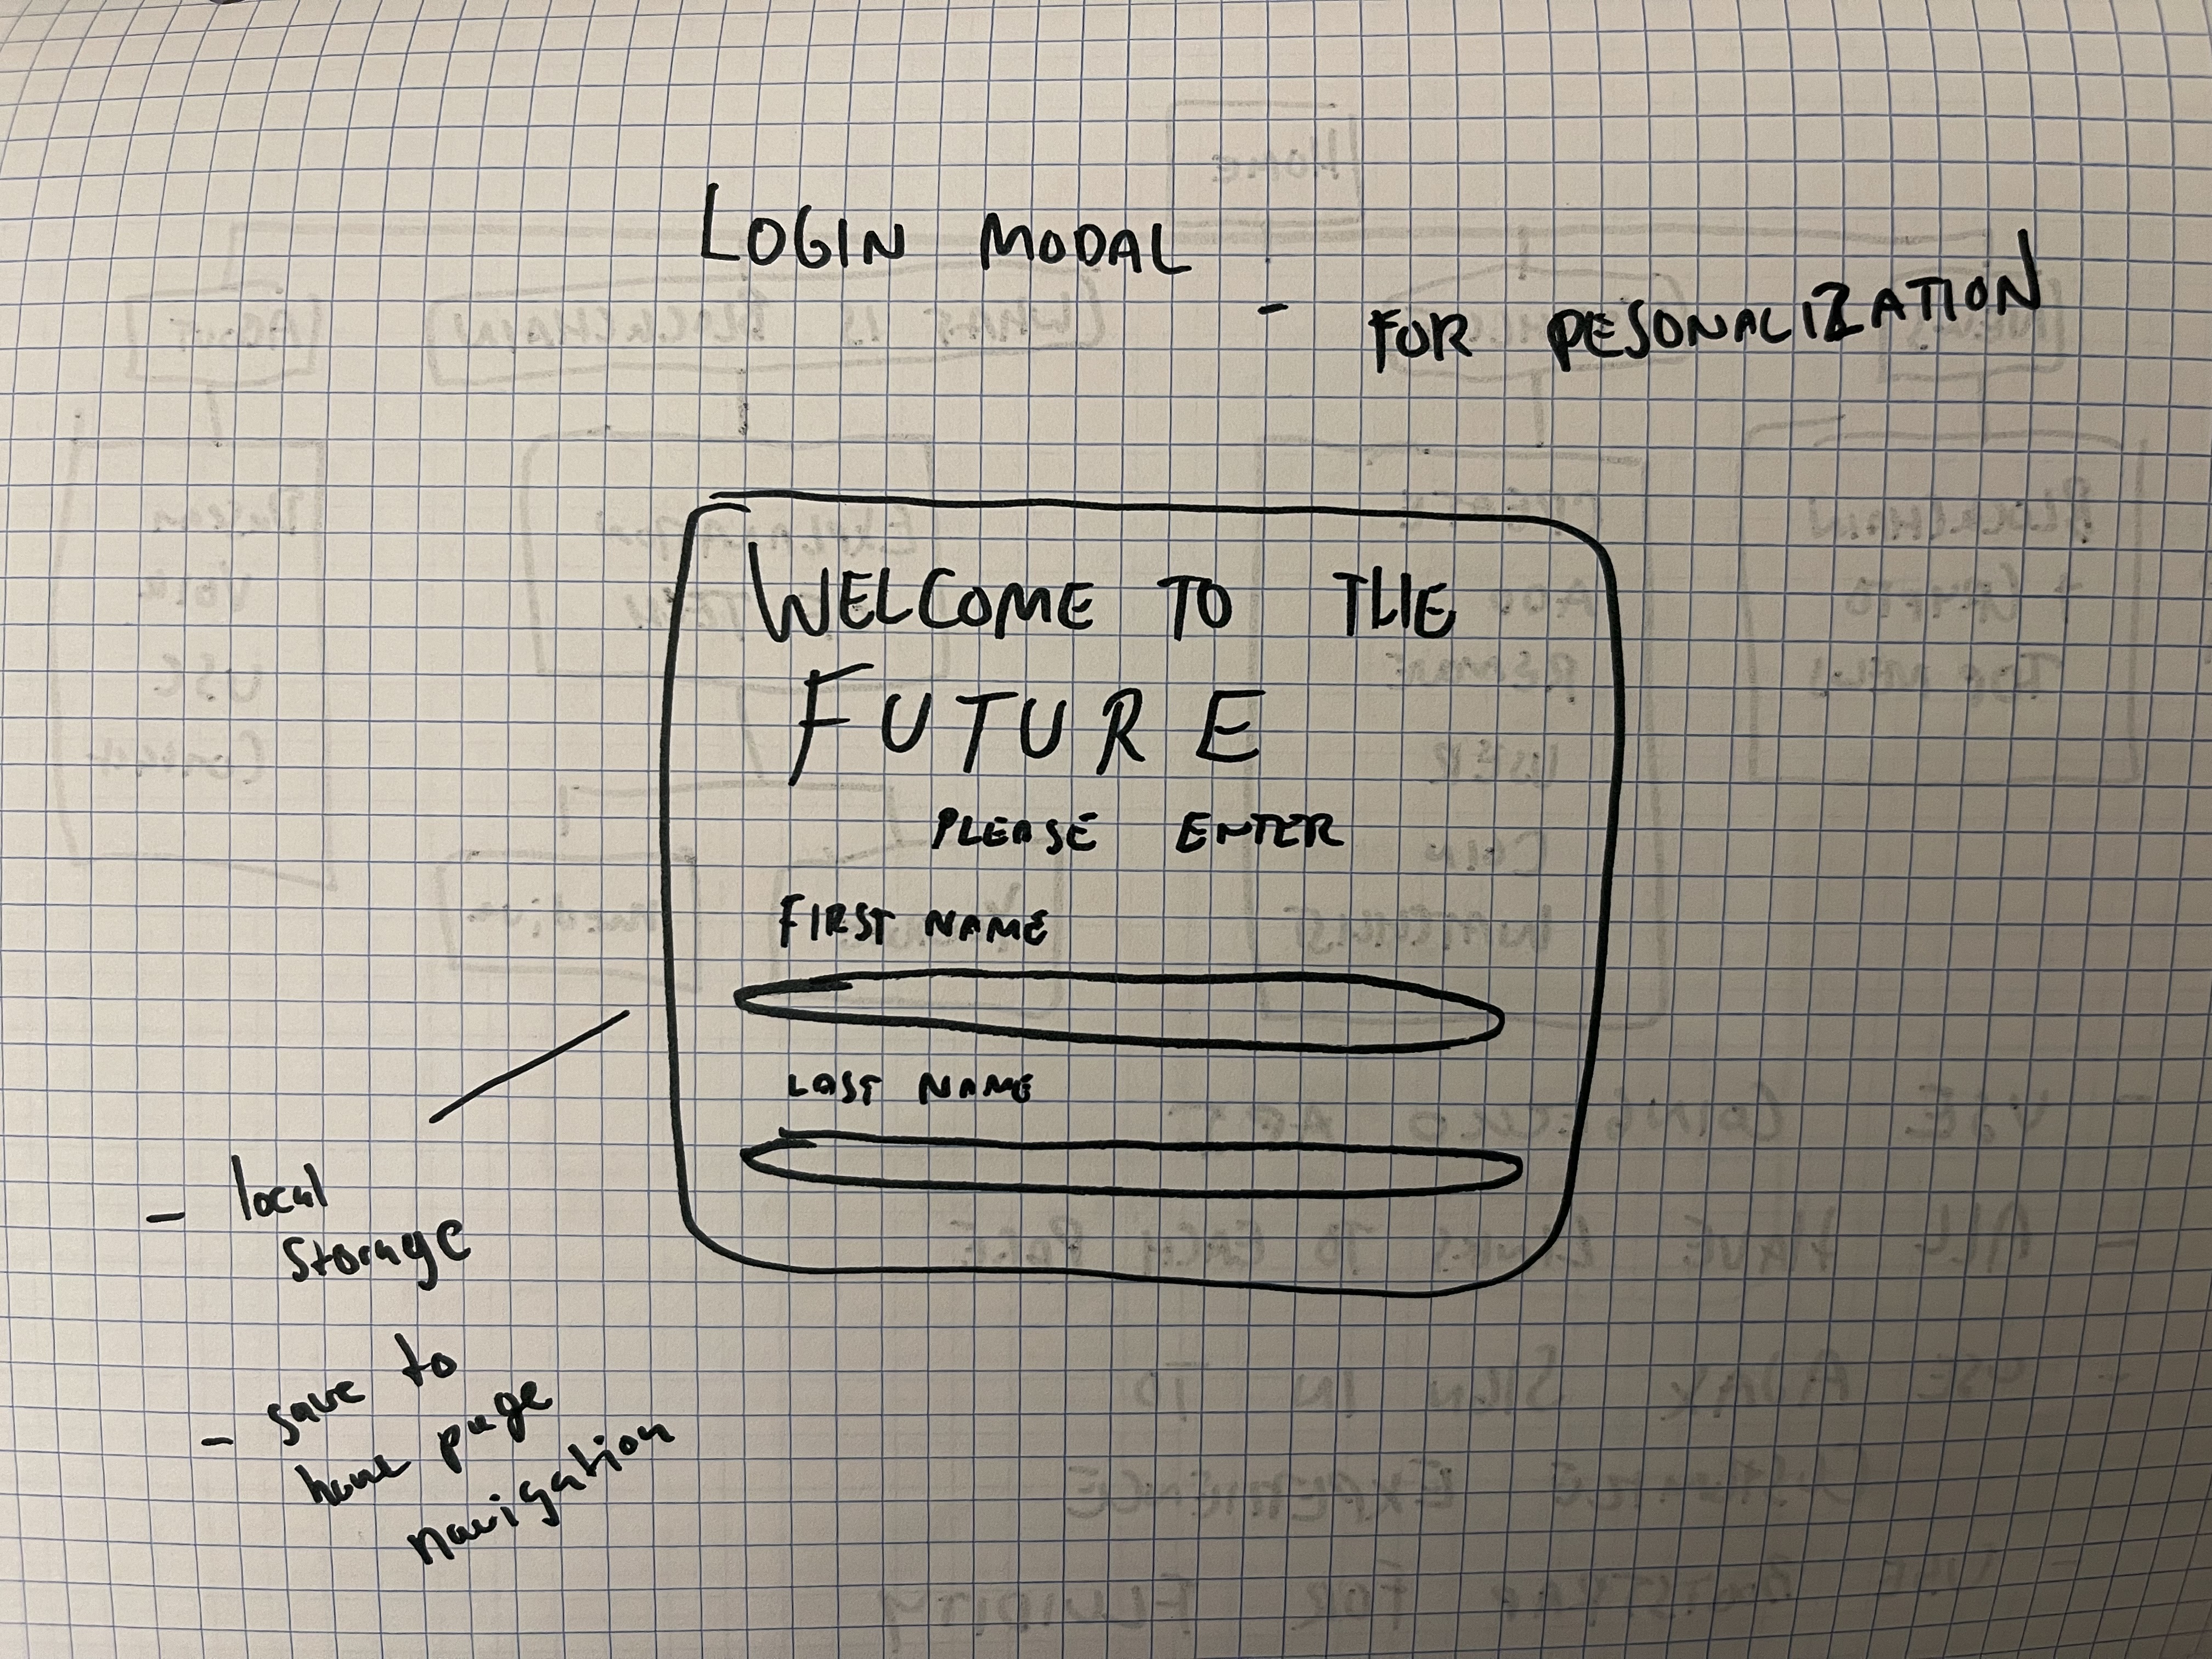 LOGIN MODAL
- FOR PESONALIZATION
WELCOME TO THE
FUTURE
PLEASE ENTER
FIRST NAME
LAST NAME
- local
storage
- save to
home page
navigation